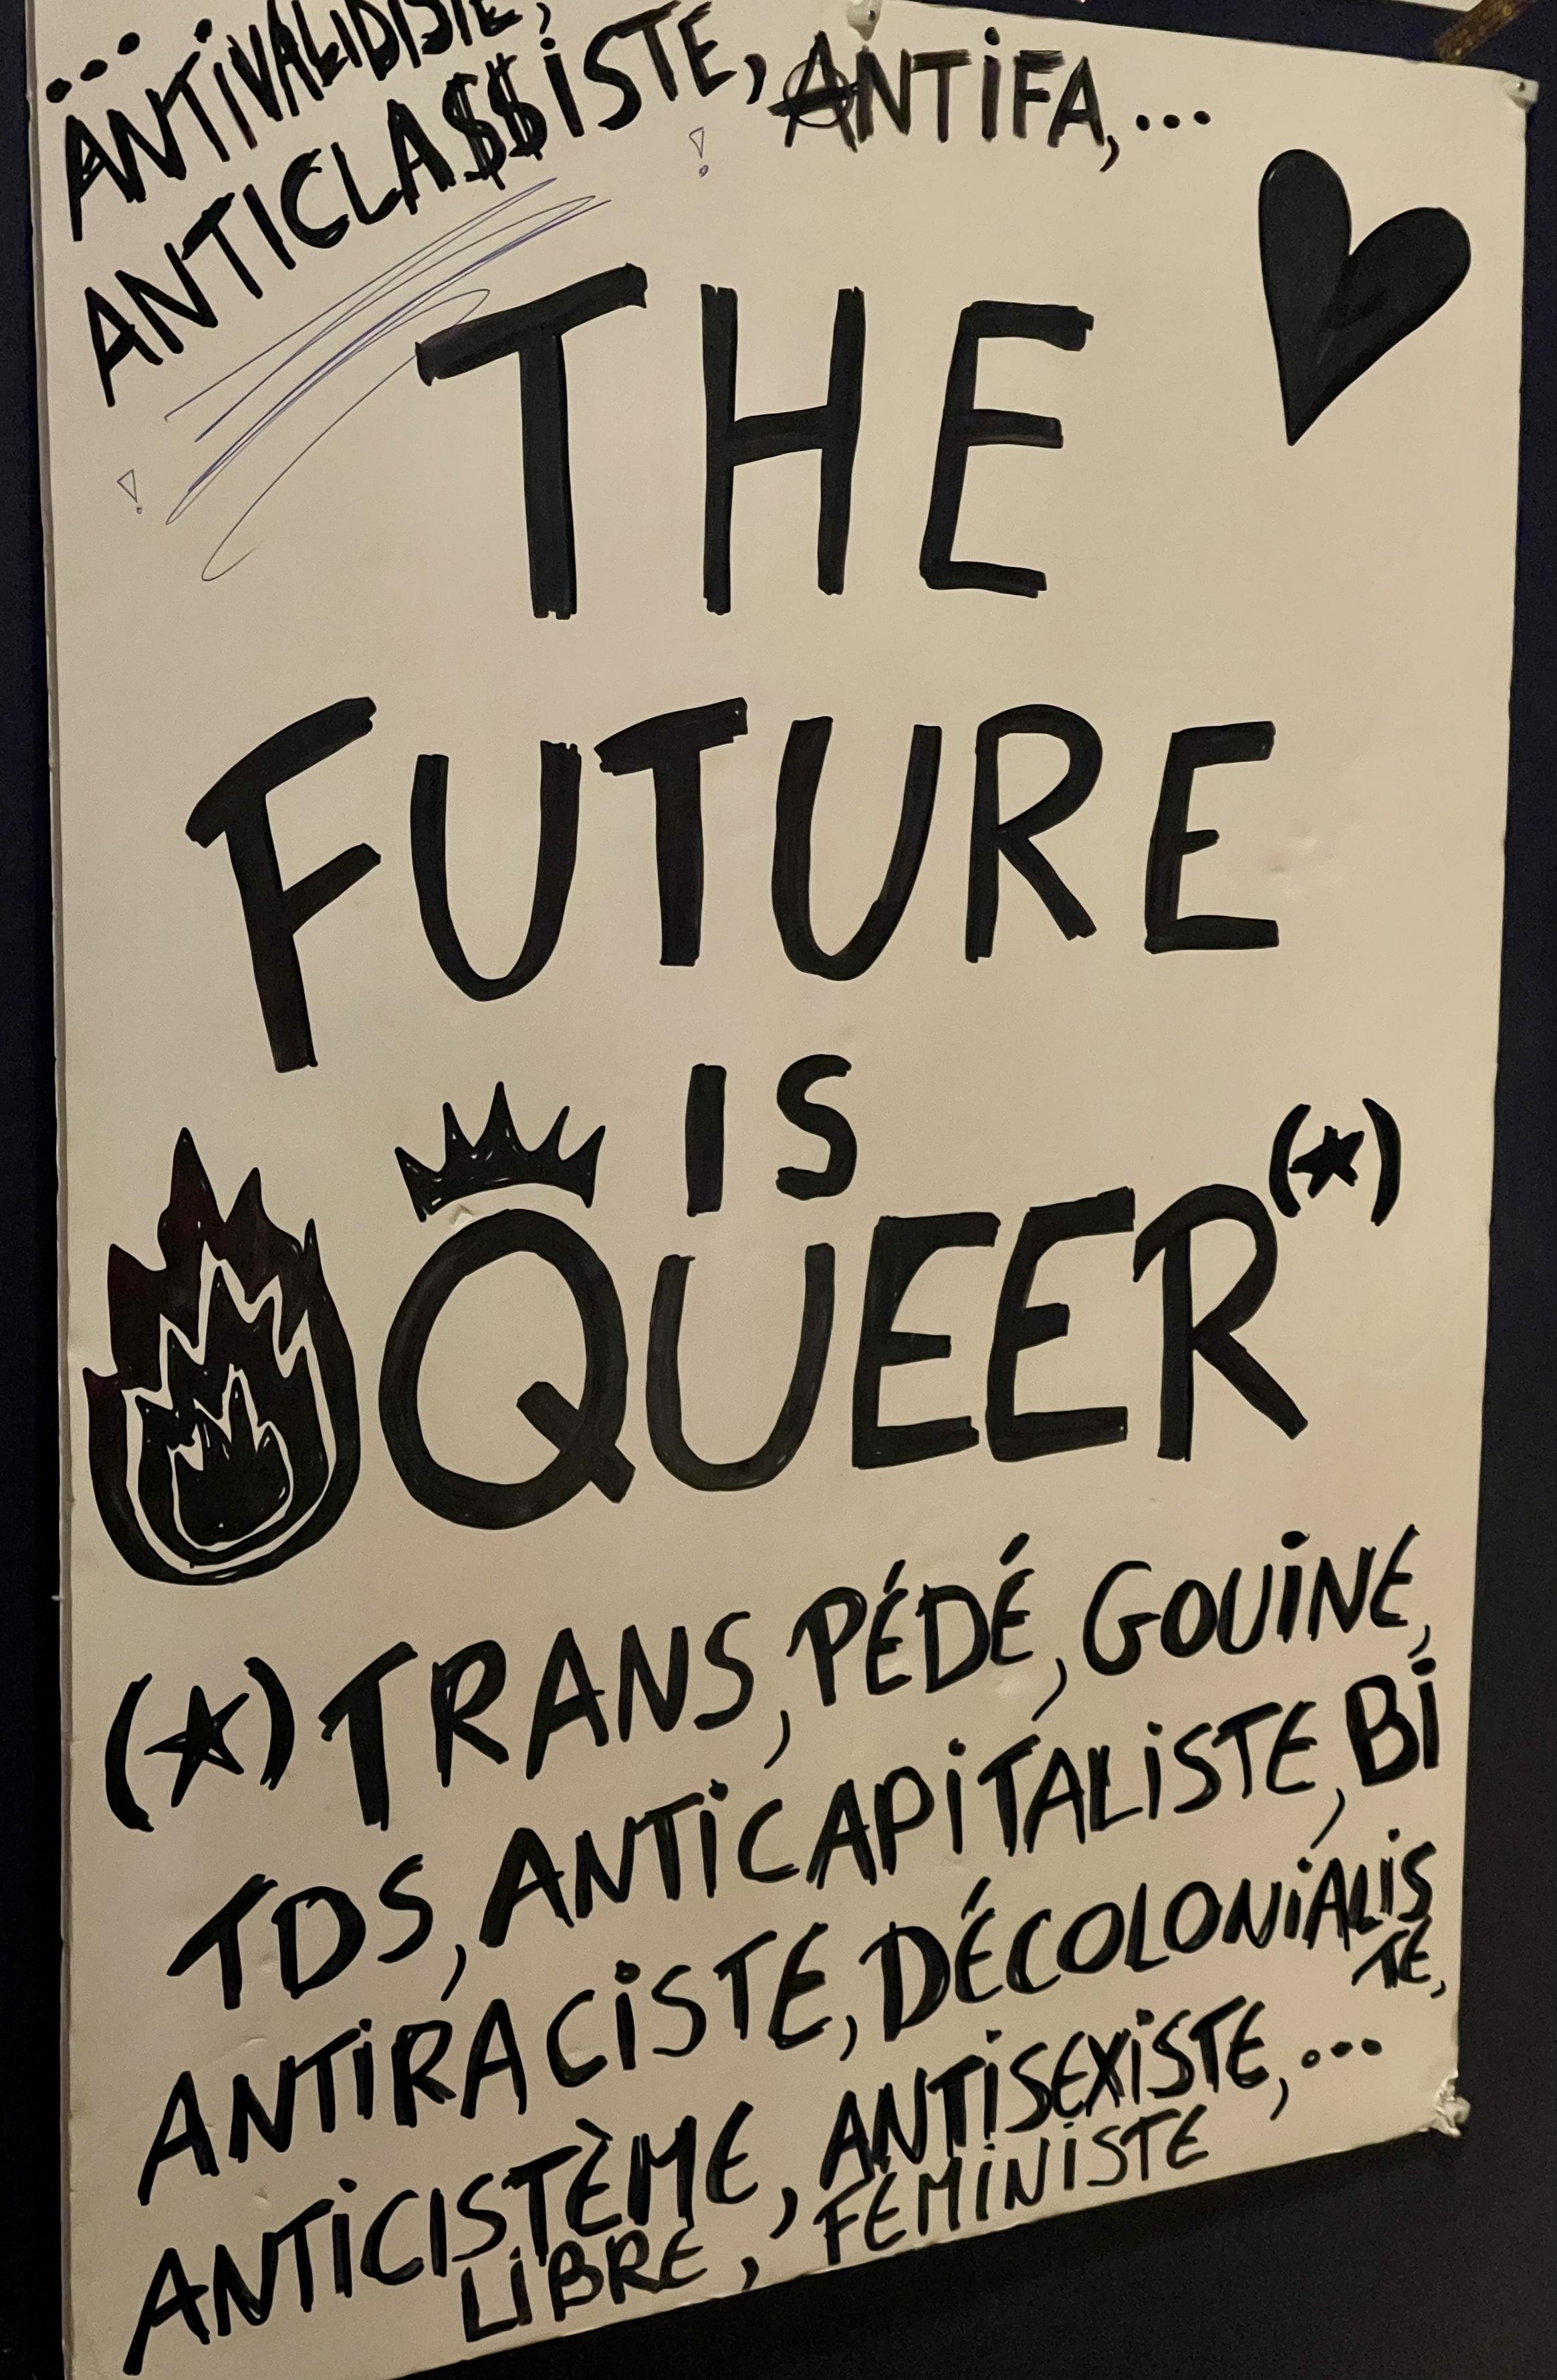 ...
ANTIVALIDISTE,
ANTICLA$$ISTE, ANTIFA,...
THE
FUTURE
IS
QUEER(★)
(★) TRANS, PÉDÉ, GOUINE,
TDS, ANTICAPITALISTE, BI
ANTIRACISTE, DÉCOLONIALIS
TE,
ANTICISTÈME, ANTISEXISTE,...
LIBRE, FÉMINISTE